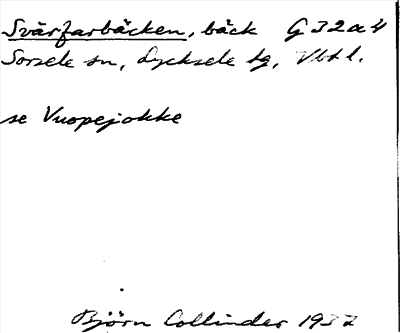 Svärfarbäcken, bäck G 32 a 4
Sorsele sn, Lycksele tg, Vbtl.
se Vuopejokke
Björn Collinder 1937